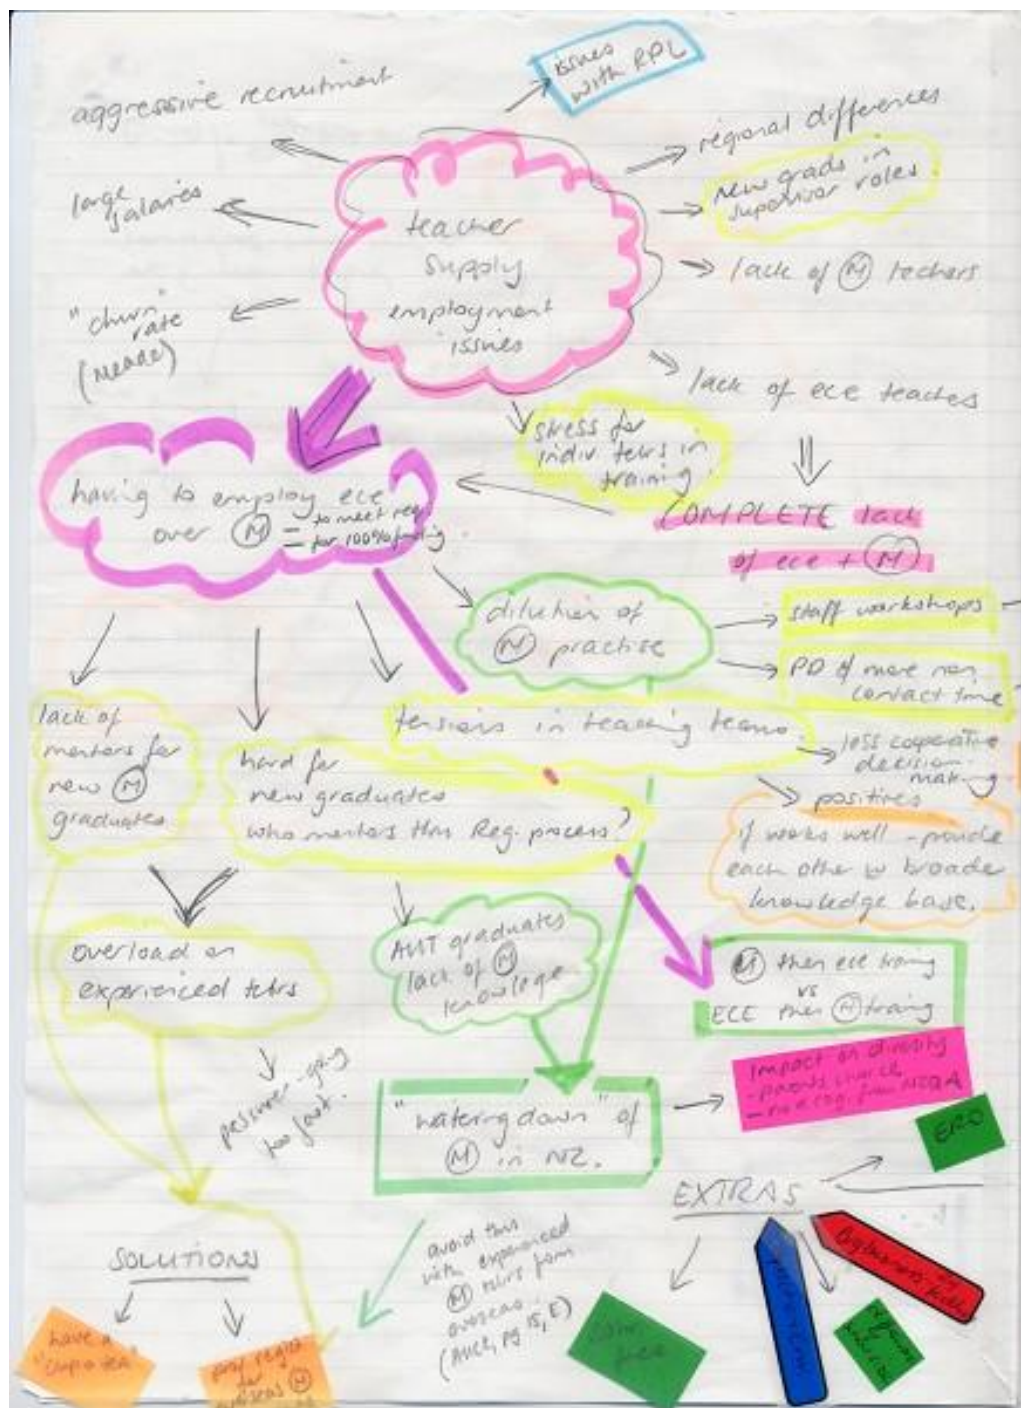 issues
with RPL
aggressive recruitment
regional differences
large
salaries
new grads in
supervisor roles.
teacher
supply
employment
issues
lack of M techars
"churn
rate
(Meade)
lack of ece teaches
stress for
indiv tchrs in
training.
having to employ ece
over M = to meet req.
for 100% funding.
COMPLETE lack
of ece + M
dilution of
M practise
staff workshops
PD & more non
contact time
lack of
mentors for
new M
graduates
tensions in teaching teams.
less cooperative
decision-
making.
hard for
new graduates
who mentors thru Reg. process?
positives
if works well - provide
each other w broader
knowledge base.
overload on
experienced tchrs
AUT graduates
lack of M
knowlege.
M then ece traing
vs
ECE then M traing
pressure - going
too fast.
"watering down" of
M in NZ.
Impact on diversity
- parents choice
- no recog. from NZQA
ERO
EXTRAS
SOLUTIONS
avoid this
with experienced
M tchrs from
overseas.
(Auck, pg 15, E)
have a
for
overseas M